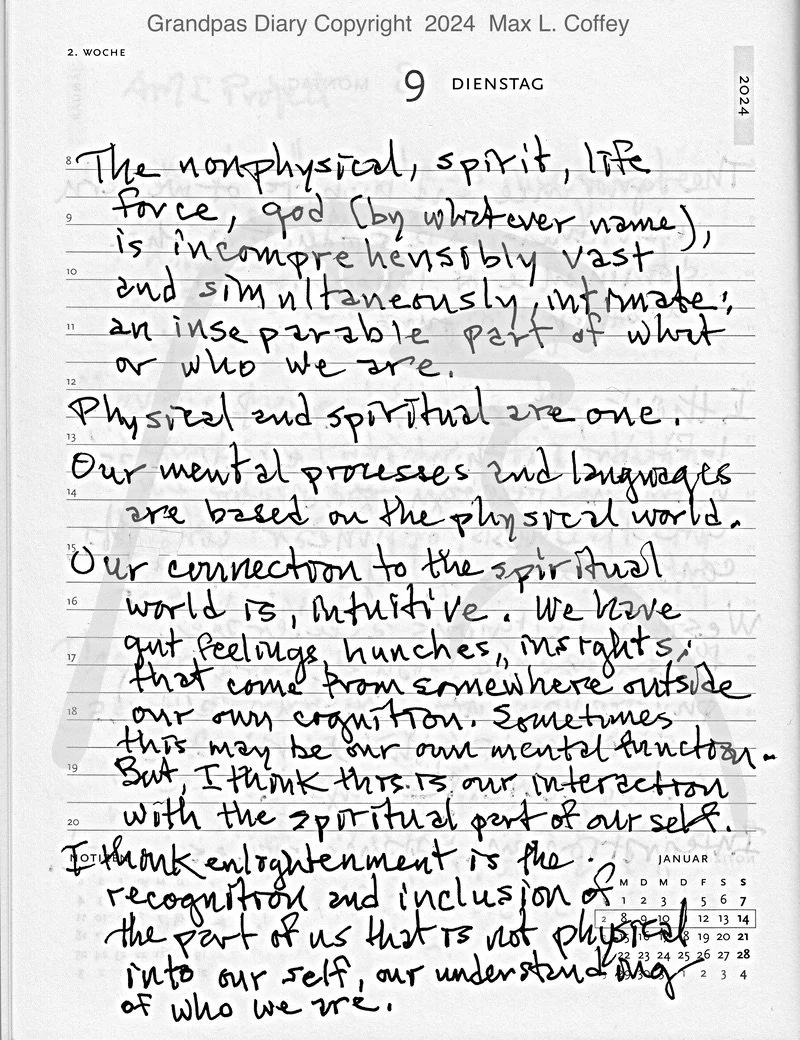 Grandpas Diary Copyright 2024 Max L. Coffey
2. WOCHE
9 DIENSTAG
2024
8 The nonphysical, spirit, life
9 force, god (by whatever name),
is incomprehensibly vast
10 and simultaneously, intimate;
11 an inseparable part of what
or who we are.
12
Physical and spiritual are one.
13
Our mental processes and languages
14 are based on the physical world.
15 Our connection to the spiritual
16 world is, intuitive. We have
gut feelings, hunches, insights;
17 that come from somewhere outside
18 our own cognition. Sometimes
this may be our own mental function.
19 But, I think this is our interaction
20 with the spiritual part of our self.
NOTIZEN
I think enlightenment is the
recognition and inclusion of
the part of us that is not physical
into our self, our understanding
of who we are.
JANUAR
M D M D F S S
1 2 3 4 5 6 7
2 8 9 10 11 12 13 14
15 16 17 18 19 20 21
22 23 24 25 26 27 28
29 30 31 1 2 3 4